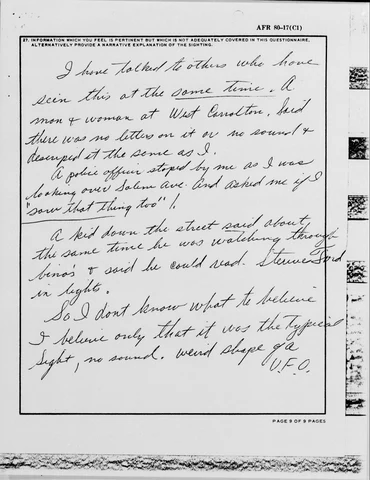 AFR 80-17(C1)
27. INFORMATION WHICH YOU FEEL IS PERTINENT BUT WHICH IS NOT ADEQUATELY COVERED IN THIS QUESTIONNAIRE,
ALTERNATIVELY PROVIDE A NARRATIVE EXPLANATION OF THE SIGHTING.
I have talked to others who have
seen this at the same time. A
man & woman at West Carrolton, Said
there was no letters on it or no sound &
descriped it the same as I.
A police officer stoped by me as I was
looking over Salem Ave. And asked me if I
"saw that thing too"!
A kid down the street said about
the same time he was watching through
bino's & said he could read. Ford
in lights.
So I dont know what to believe
I believe only that it was the typical
Sight, no sound. weird shape of a
U.F.O.
PAGE 9 OF 9 PAGES